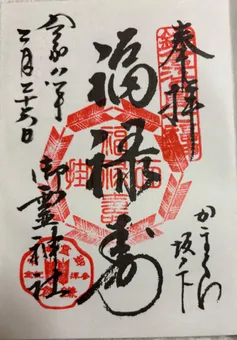 奉拝
かまくら
坂ノ下
福禄寿
御霊神社
令和八年
二月二十六日